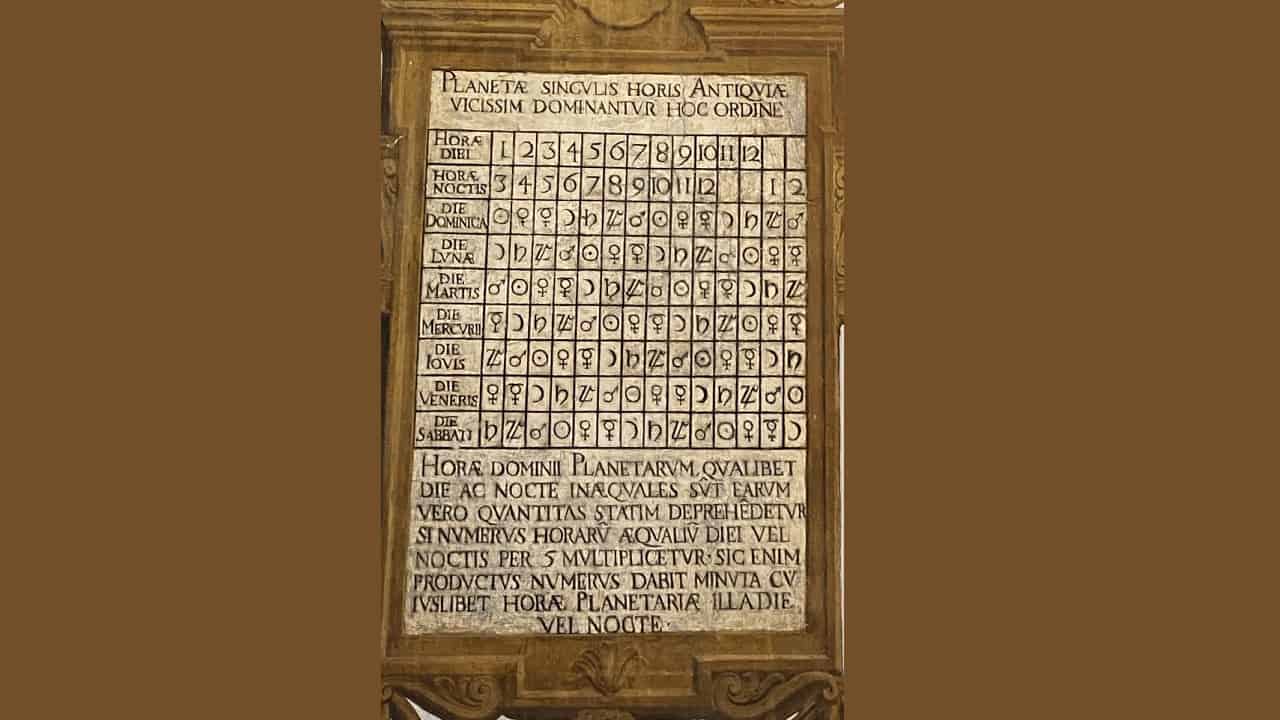 PLANETÆ SINGVLIS HORIS ANTIQVIÆ
VICISSIM DOMINANTVR HOC ORDINE
HORÆ DIEI 1 2 3 4 5 6 7 8 9 10 11 12
HORÆ NOCTIS 3 4 5 6 7 8 9 10 11 12 1 2
DIE DOMINICA ☉ ♀ ☿ ☽ ♄ ♃ ♂ ☉ ♀ ☿ ☽ ♄ ♃ ♂
DIE LVNÆ ☽ ♄ ♃ ♂ ☉ ♀ ☿ ☽ ♄ ♃ ♂ ☉ ♀ ☿
DIE MARTIS ♂ ☉ ♀ ☿ ☽ ♄ ♃ ♂ ☉ ♀ ☿ ☽ ♄ ♃
DIE MERCVRII ☿ ☽ ♄ ♃ ♂ ☉ ♀ ☿ ☽ ♄ ♃ ☉ ♀ ☿
DIE IOVIS ♃ ♂ ☉ ♀ ☿ ☽ ♄ ♃ ♂ ☉ ♀ ☿ ☽ ♄
DIE VENERIS ♀ ☿ ☽ ♄ ♃ ♂ ☉ ♀ ☿ ☽ ♄ ♃ ♂ ☉
DIE SABBATI ♄ ♃ ♂ ☉ ♀ ☿ ☽ ♄ ♃ ♂ ☉ ♀ ☿ ☽
HORÆ DOMINII PLANETARVM QVALIBET
DIE AC NOCTE INÆQVALES SV̂T EARVM
VERO QVANTITAS STATIM DEPREHÊDETVR
SI NVMERVS HORARV̂ ÆQVALIV̂ DIEI VEL
NOCTIS PER 5 MVLTIPLICETVR· SIC ENIM
PRODVCTVS NVMERVS DABIT MINVTA CV
IVSLIBET HORÆ PLANETARIÆ ILLA DIE
VEL NOCTE·